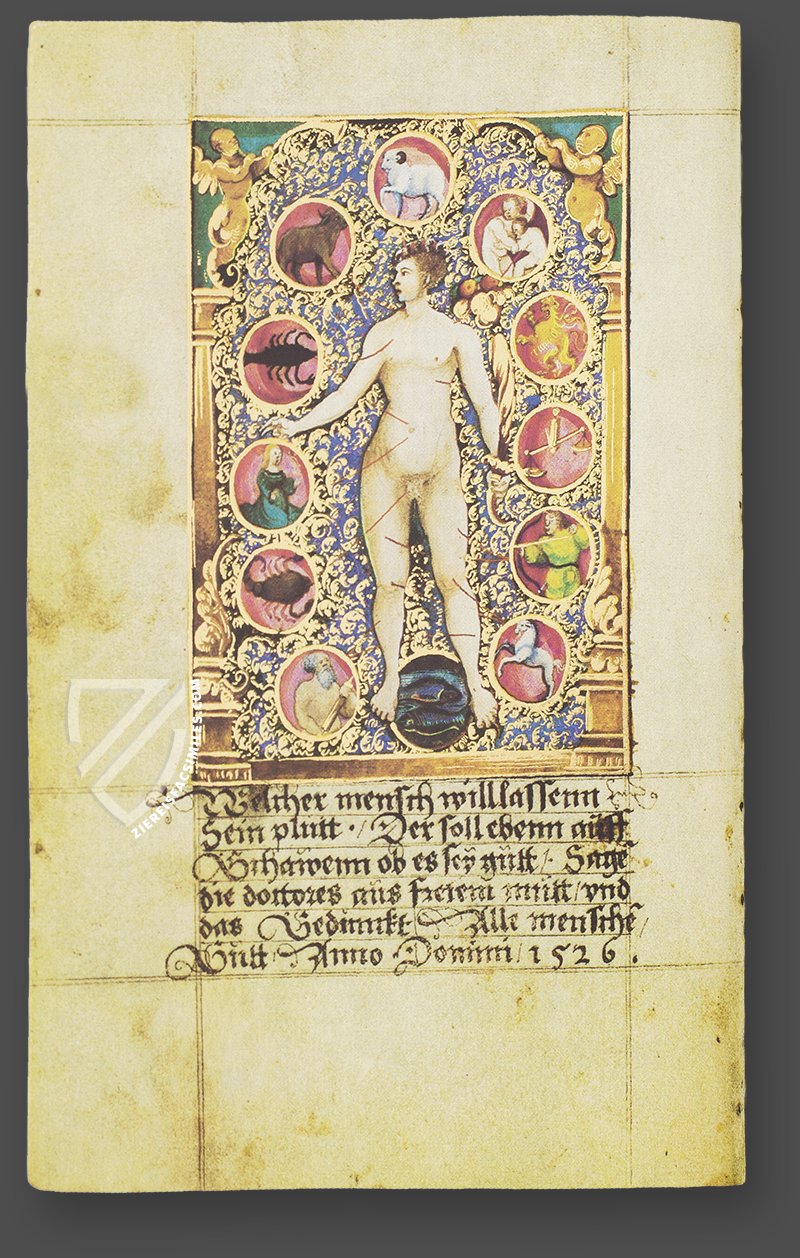 Welcher mensch will lassenn
Sein plutt ·/ Der soll ebenn auff
Schawenn ob es seÿ gutt / Sagē
die doctores aus freiem mutt / vnd
das Gedunkt Alle menschē /
Gutt / Anno · Domini / 1526 ·
ZIEREIS FACSIMILES.COM